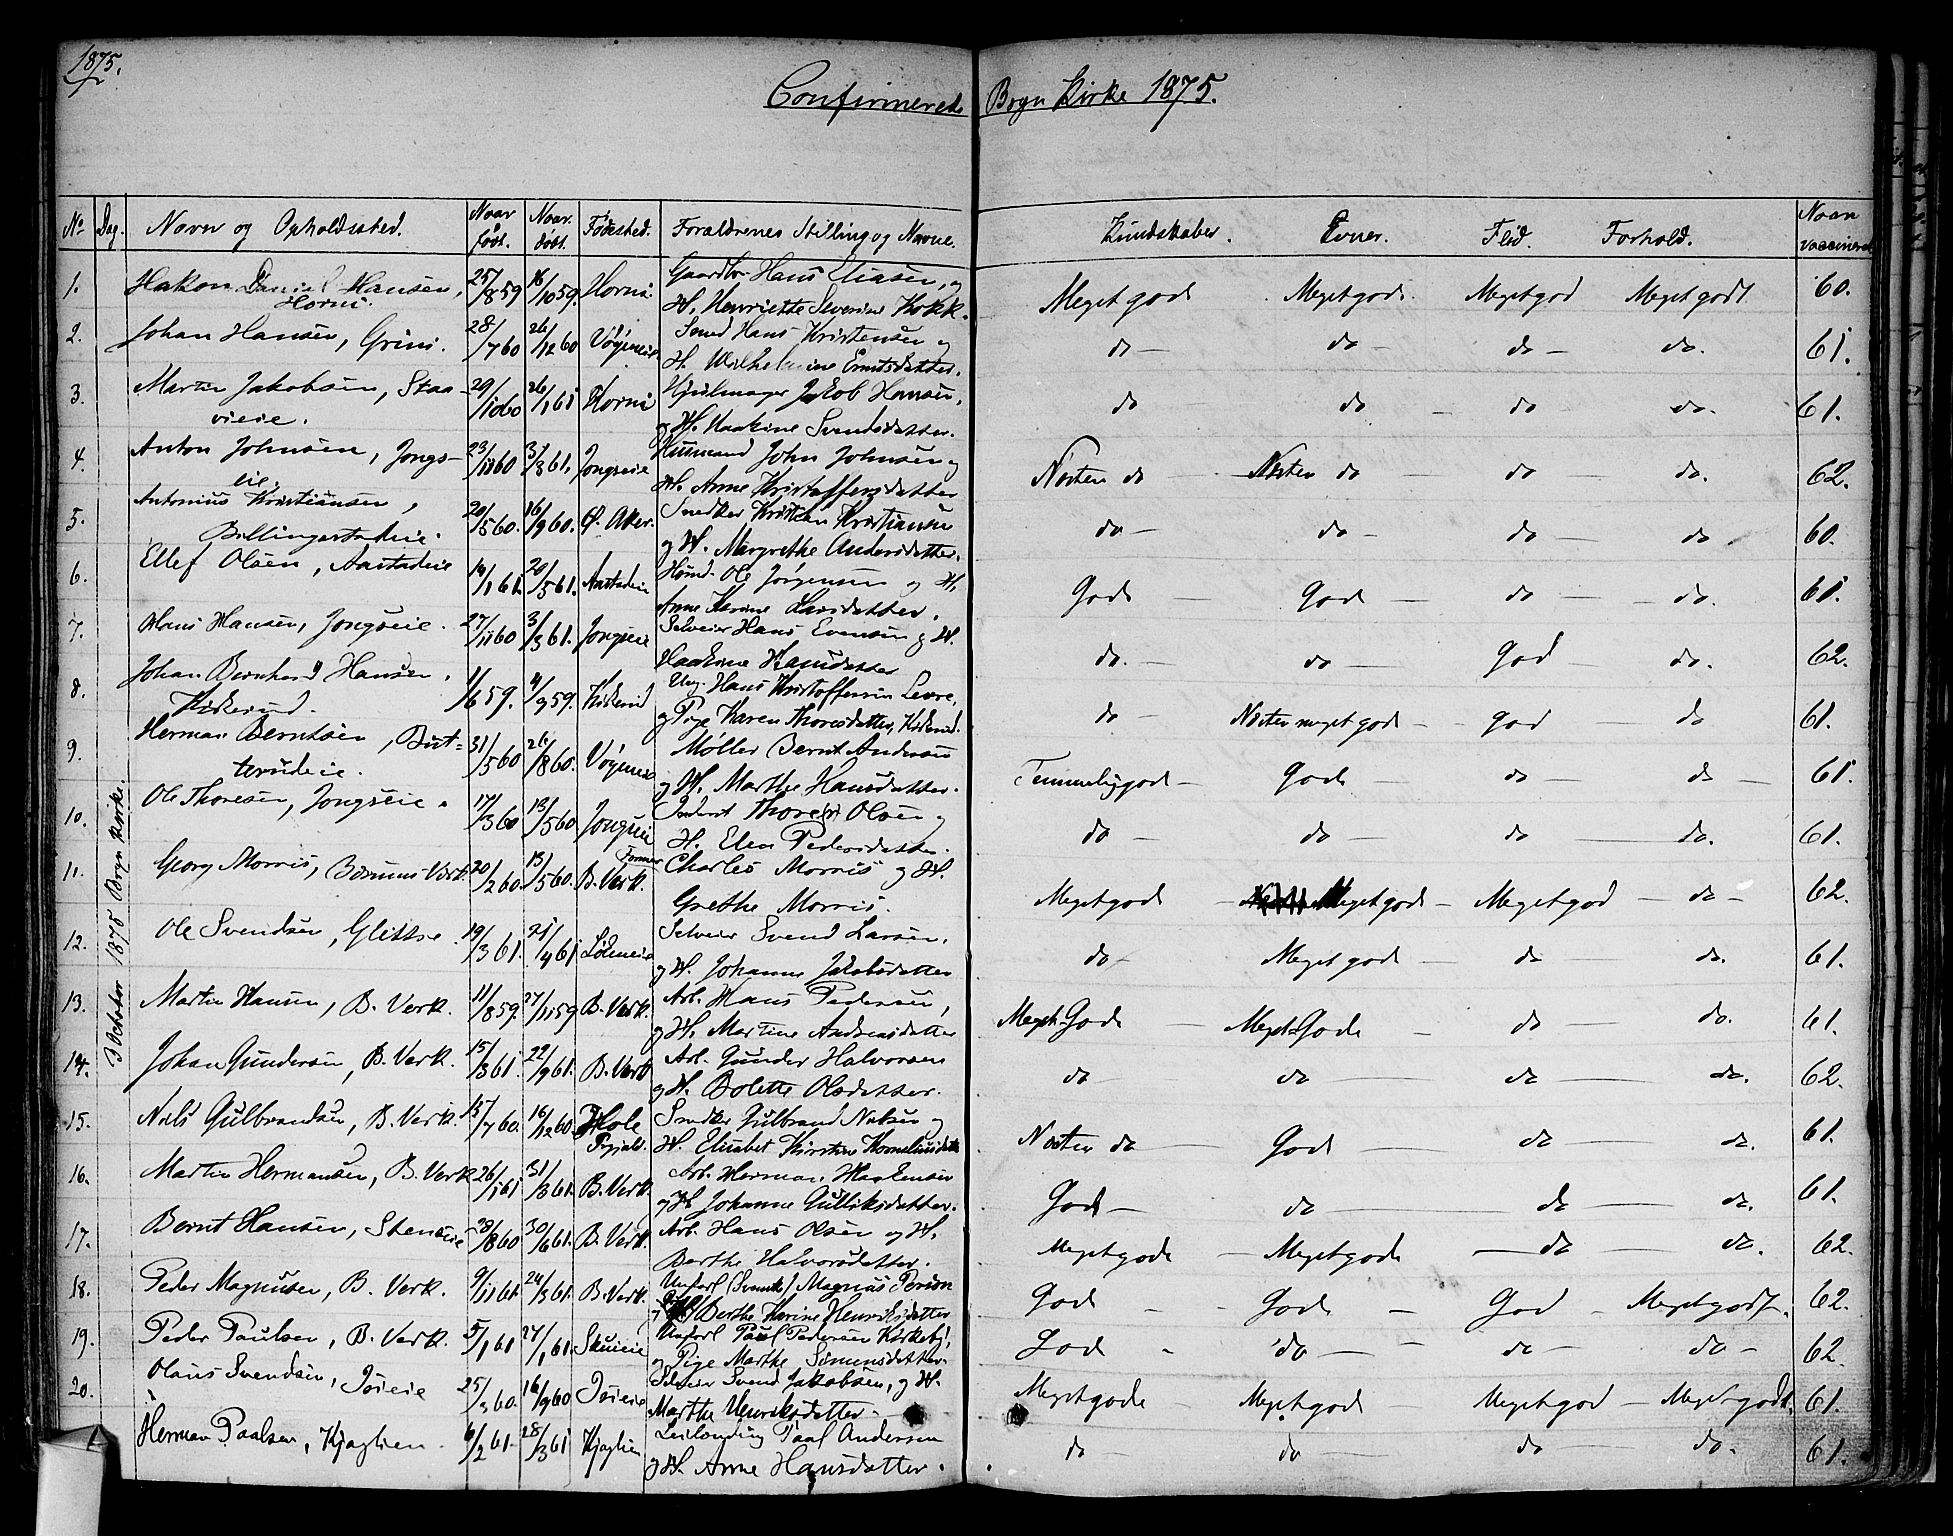 1875.
Confirmerede Bryn Kirke 1875.
No Dag. Navn og Opholdssted. Naar født. Naar døbt. Fødested. Forældrenes Stilling og Navne. Kundskaber. Evner. Flid. Forhold. Naar vaccineret
3 October 1875 Bryn Kirke.
1. Hakon Daniel Hansen, 25/8 59 16/10 59 Horni. Gaardbr. Hans Eliasen, og Meget gode Meget gode. Meget god Meget godt 60.
Horni. H. Henriette Severine Kokk.
2. Johan Hansen, Grini. 28/7 60 26/12 60 Vøyeneie Smed Hans Kristensen og do — do — do — do. 61.
H. Wilhelmine Erntsdatter.
3. Martin Jakobsen, Staa- 29/10 60 26/1 61 Horni Hjulmager Jakob Hansen, do do — do — do. 61.
vieie. og H. Haakine Svendsdatter.
4. Anton Johnsen, Jongs- 23/11 60 31/3 61. Jongseie Husmand John Johnsen og Næsten do Næsten do — do — do. 62.
eie. H. Anne Kristoffersdatter
5. Antonius Kristiansen, 20/5 60. 16/9 60. Ø. Aker. Snedker Kristian Kristiansen do — do — do — do 60.
Billingstadeie. og H. Margrethe Andersdatter.
6. Ellef Olsen, Aastadeie 14/1 61. 20/5 61. Aastadeie Husmd. Ole Jørgensen og H. Gode — God — do — do. 61.
Anne Karine Larsdatter.
7. Hans Hansen, Jongseie. 27/11 60 3/3 61. Jongseie Selveier Hans Evensen og H. do. — do — God — do. 62.
Haakine Hansdatter
8. Johan Bernhard Hansen, 1/6 59. 4/9 59. Kirkerud Ung. Hans Kristoffersen Levre, do — Næsten meget gode — god do 61.
Kirkerud. og Pige Karen Thoresdatter, Kirkerud.
9. Herman Berntsen, But- 31/5 60 26/8 60. Vøyeneie Møller Bernt Andersen Temmelig gode — Gode — do — do — 61.
terudeie. og H. Marthe Hansdatter.
10. Ole Thoresen, Jongseie. 17/3 60 13/5 60 Jongseie Thore Olsen og do — do — do — do. 61.
H. Elen Pedersdatter.
11. Georg Morris, Bærums Værk. 20/2 60. 13/5 60. B. Værk. Former Charles Morris og H. Meget gode — Meget gode — Meget god — do — 62.
Grethe Morris.
12. Ole Svendsen, Glittre. 19/3 61. 21/4 61 Selveier Svend Larsen, do — Meget gode — do — do. 61.
og H. Johanne Jakobsdatter
13. Martin Hansen, B. Verk. 11/8 59. 27/11 59 B. Verk. Arb. Hans Pedersen, Meget Gode — Meget Gode — do — do. 61.
og H. Martine Andreasdatter
14. Johan Gundersen, B. Verk. 15/3 61. 22/9 61. B. Verk Arb. Gunder Halvorsen do — do — do — do. 62.
og H. Bolette Olsdatter.
15. Nils Gulbrandsen, B. Verk. 15/7 60. 16/12 60 Hole Snedker Gulbrand Nilsen og Næsten do — God — do — do. 61.
Prgjeld. H. Elisabet Kirstine Korneliusdatter
16. Martin Hermansen, B. Verk 26/1 61 31/3 61. B. Verk. Arb. Herman Martensen Gode — do — do — do. 61.
og H. Johanne Gulliksdatter.
17. Bernt Hansen, Stenseie 28/8 60 30/6 61. B. Verk. Arb. Hans Olsen og H. Meget gode — Meget gode — do — do. 62.
Berthe Halvorsdatter.
18. Peder Magnusen, B. Verk. 9/11 61. 24/3 61. B. Verk. Ungkarl (Svensk) Magnus Person God — Gode — God — Meget godt — 62.
Berthe Karine Henriksdatter
19. Peder Paulsen, B. Verk. 5/1 61 27/1 61. Skuieie Ungkarl Paul Pedersen Kirkeby, God — do — do — do — 62.
og Pige Marthe Simensdatter.
20. Olaus Svendsen, Isieie 25/3 60. 16/9 60 Isieie Selveier Svend Jakobsen, og H. Meget gode — Meget gode Meget god — Meget godt. 61.
Marthe Henriksdatter.
Herman Paalsen, Kjaglien. 6/2 61. 28/3 61 Kjaglien Leilending Paal Andersen do — do — do — do. 61.
og H. Anne Hansdatter.